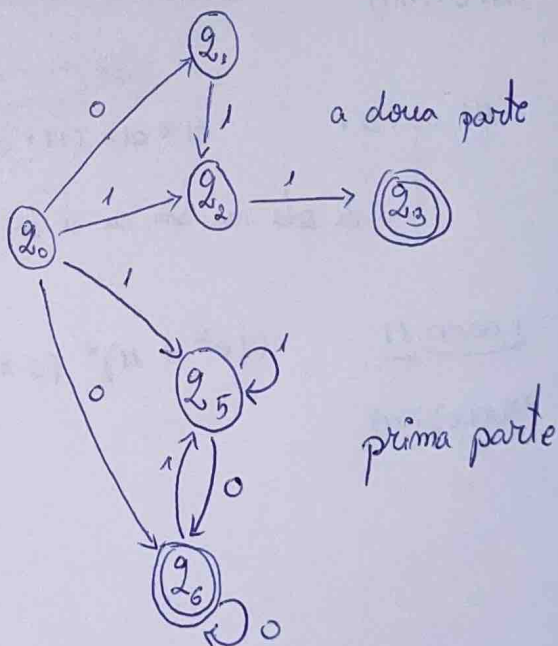 q₁
0
1
a doua parte
1
q₂
1
q₃
q₀
1
0
q₅
1
prima parte
1
0
q₆
0